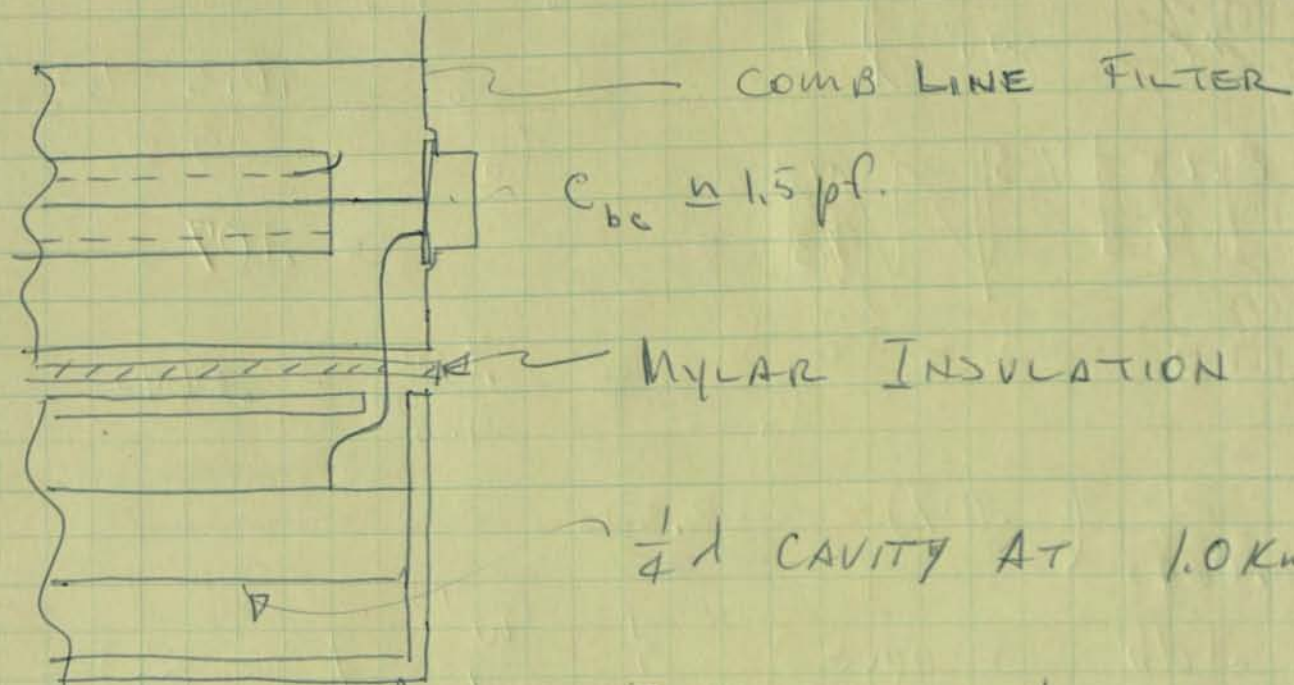 COMB LINE FILTER
C_bc ≅ 1.5 pf.
MYLAR INSULATION
1/4 λ CAVITY AT 1.0